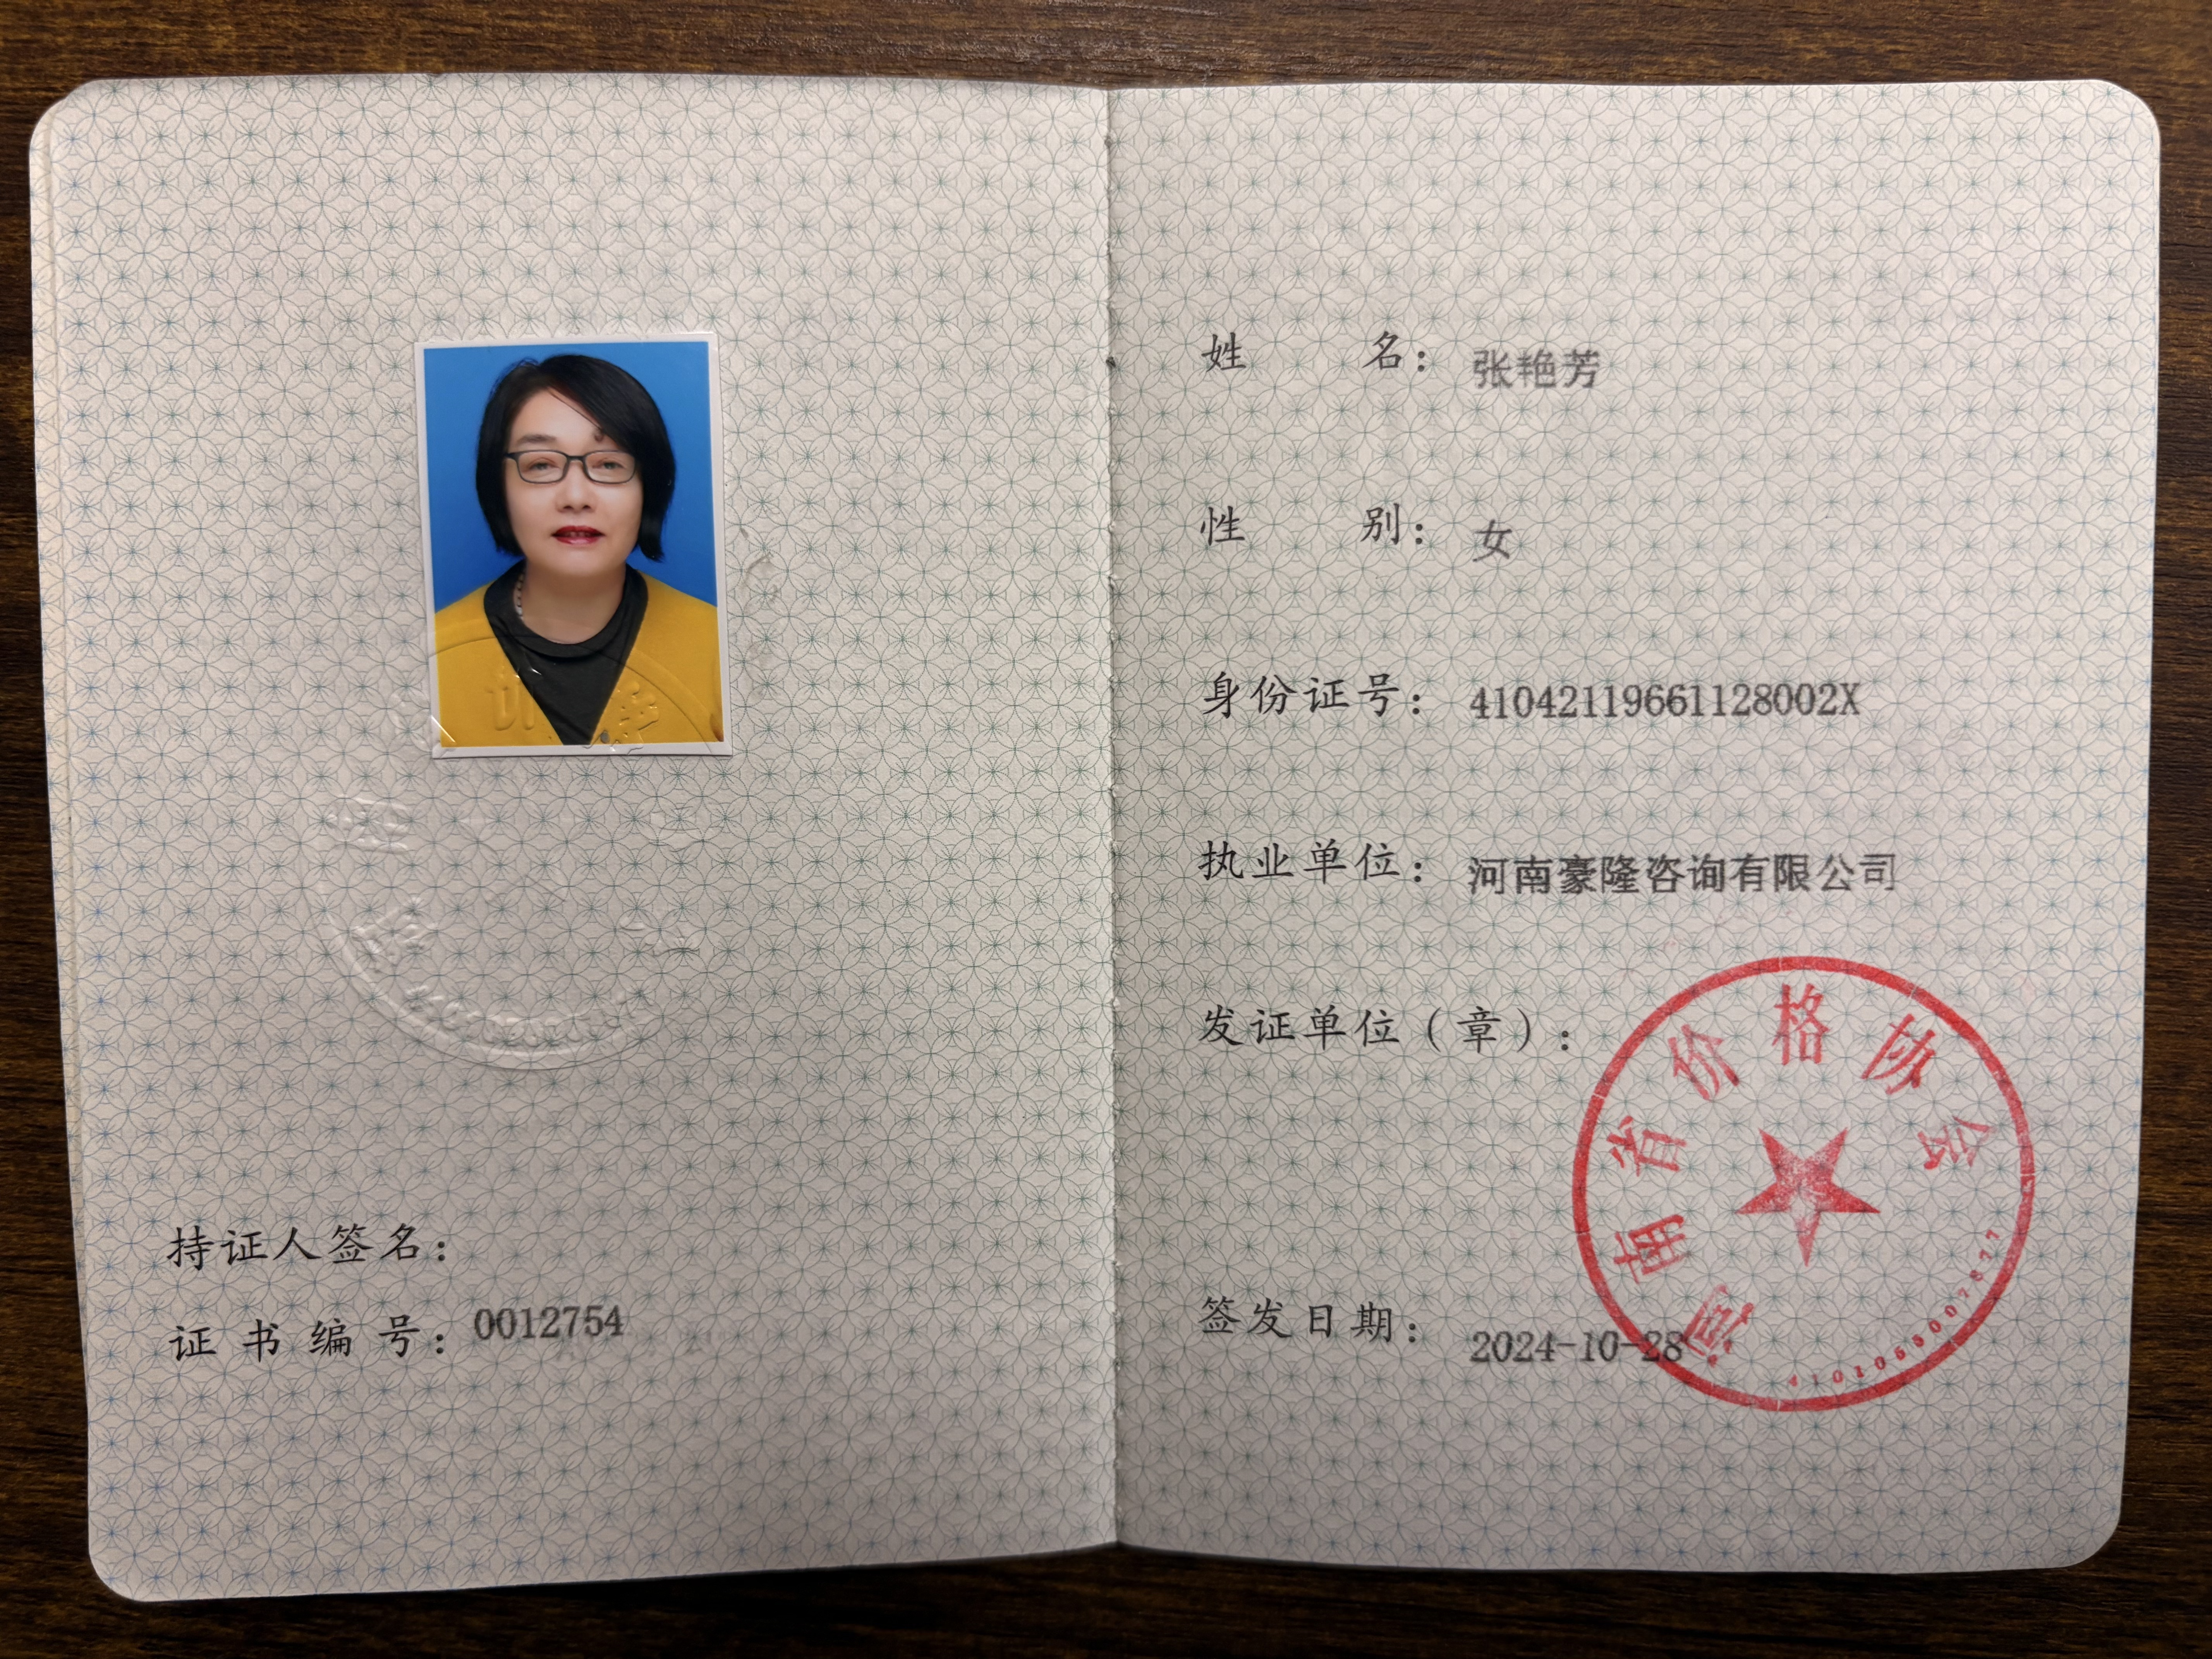 持证人签名：
证书编号：0012754
姓名：张艳芳
性别：女
身份证号：41042119661128002X
执业单位：河南豪隆咨询有限公司
发证单位（章）：
河南省价格协会
签发日期：2024-10-28